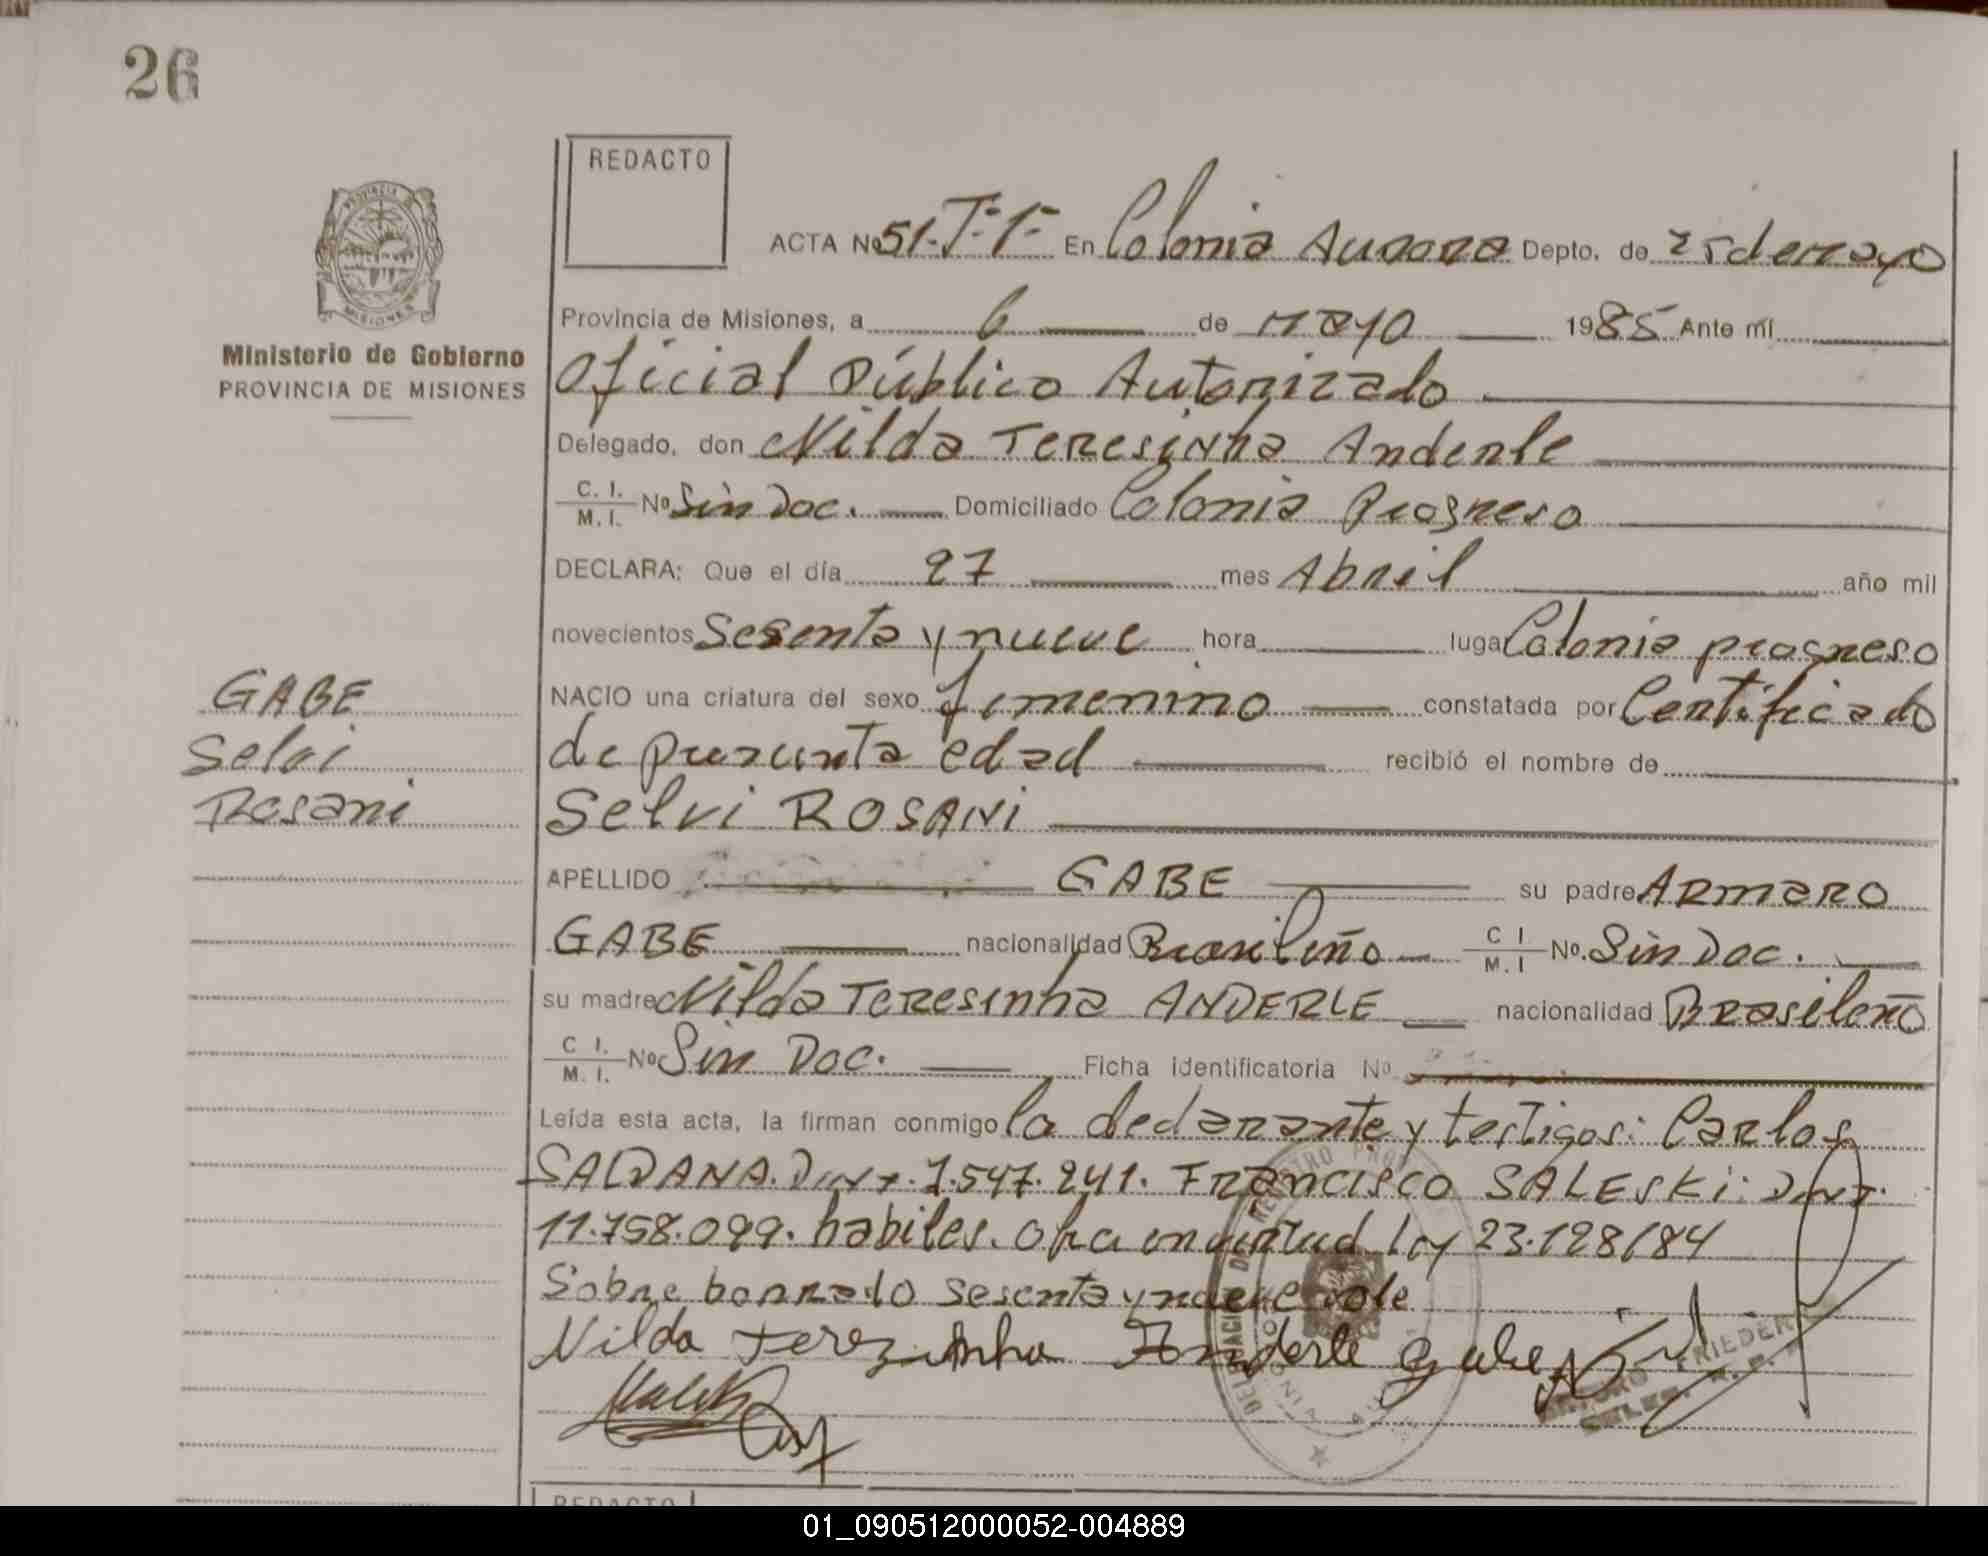 26
REDACTO
ACTA Nº 51. Tº 1º En Colonia Aurora Depto. de 25 de mayo
Provincia de Misiones, a 6 de MAYO 1985 Ante mí
Oficial Público Autorizado
Ministerio de Gobierno
PROVINCIA DE MISIONES
Delegado, don Nilda Teresinha Anderle
C. I. M. I. Nº Sin Doc. Domiciliado Colonia Progreso
DECLARA: Que el día 27 mes Abril año mil
novecientos Sesenta y nueve hora lugar Colonia progreso
GABE
Selvi
Rosani
NACIO una criatura del sexo femenino constatada por Certificado
de presunta edad recibió el nombre de
Selvi ROSANI
APELLIDO GABE su padre ARMARO
GABE nacionalidad Brasileño C I M. I No. Sin Doc.
su madre Nilda TERESINHA ANDERLE nacionalidad BRasileño
C I. M. I. Nº Sin Doc. Ficha identificatoria Nº
Leída esta acta, la firman conmigo la declarante y testigos: Carlos
SALDANA. 7.547.241. FRANCISCO SALESKi:
11.758.099. habiles. en virtud ley 23.128/84
Sobre borrado sesenta y nueve vale
Nilda Terezinha Anderle Gabe
FRIEDER
REDACTO
01_090512000052-004889